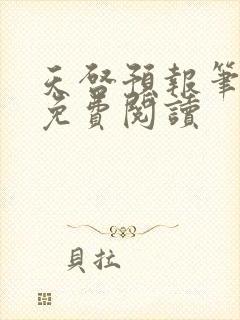 天啓預報筆
免費閱讀
貝拉